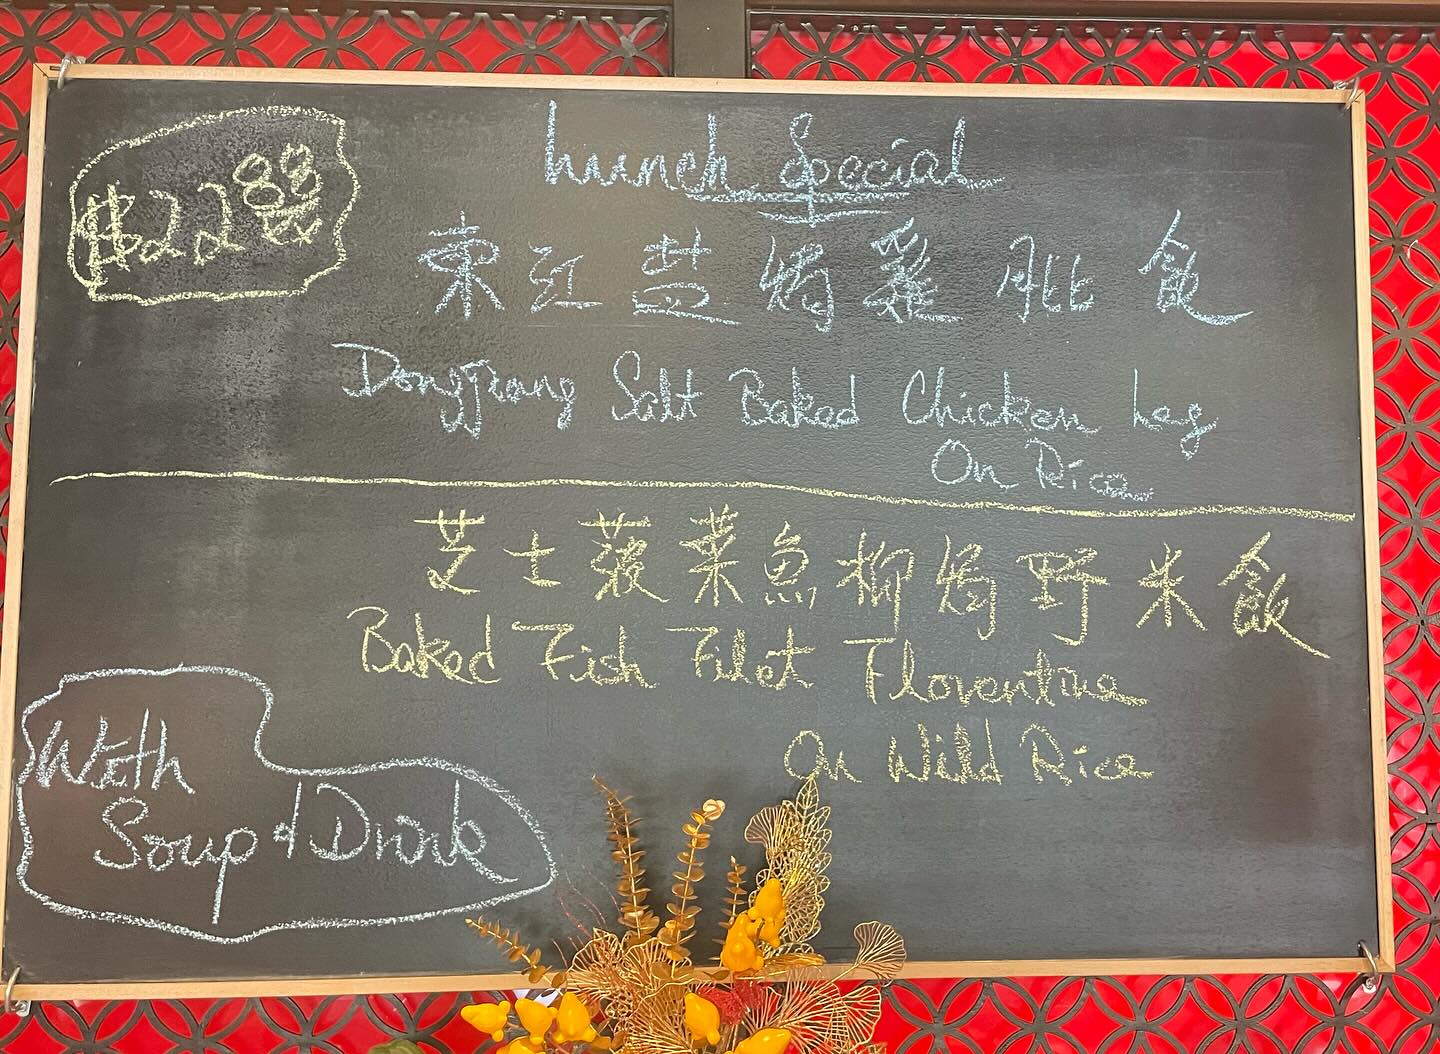 $22.88
Lunch Special
東江盐焗雞脾飯
Dongjiang Salt Baked Chicken Leg
On Rice
芝士菠菜魚柳焗野米飯
Baked Fish Filet Florentine
On Wild Rice
With
Soup & Drink